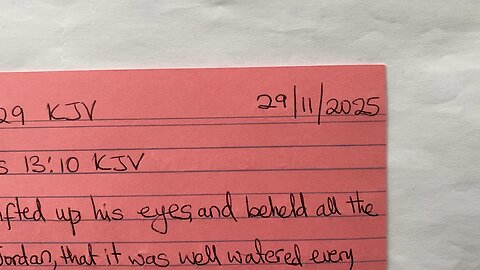 29 KJV 29/11/2025
s 13:10 KJV
ifted up his eyes, and beheld all the
Jordan, that it was well watered every